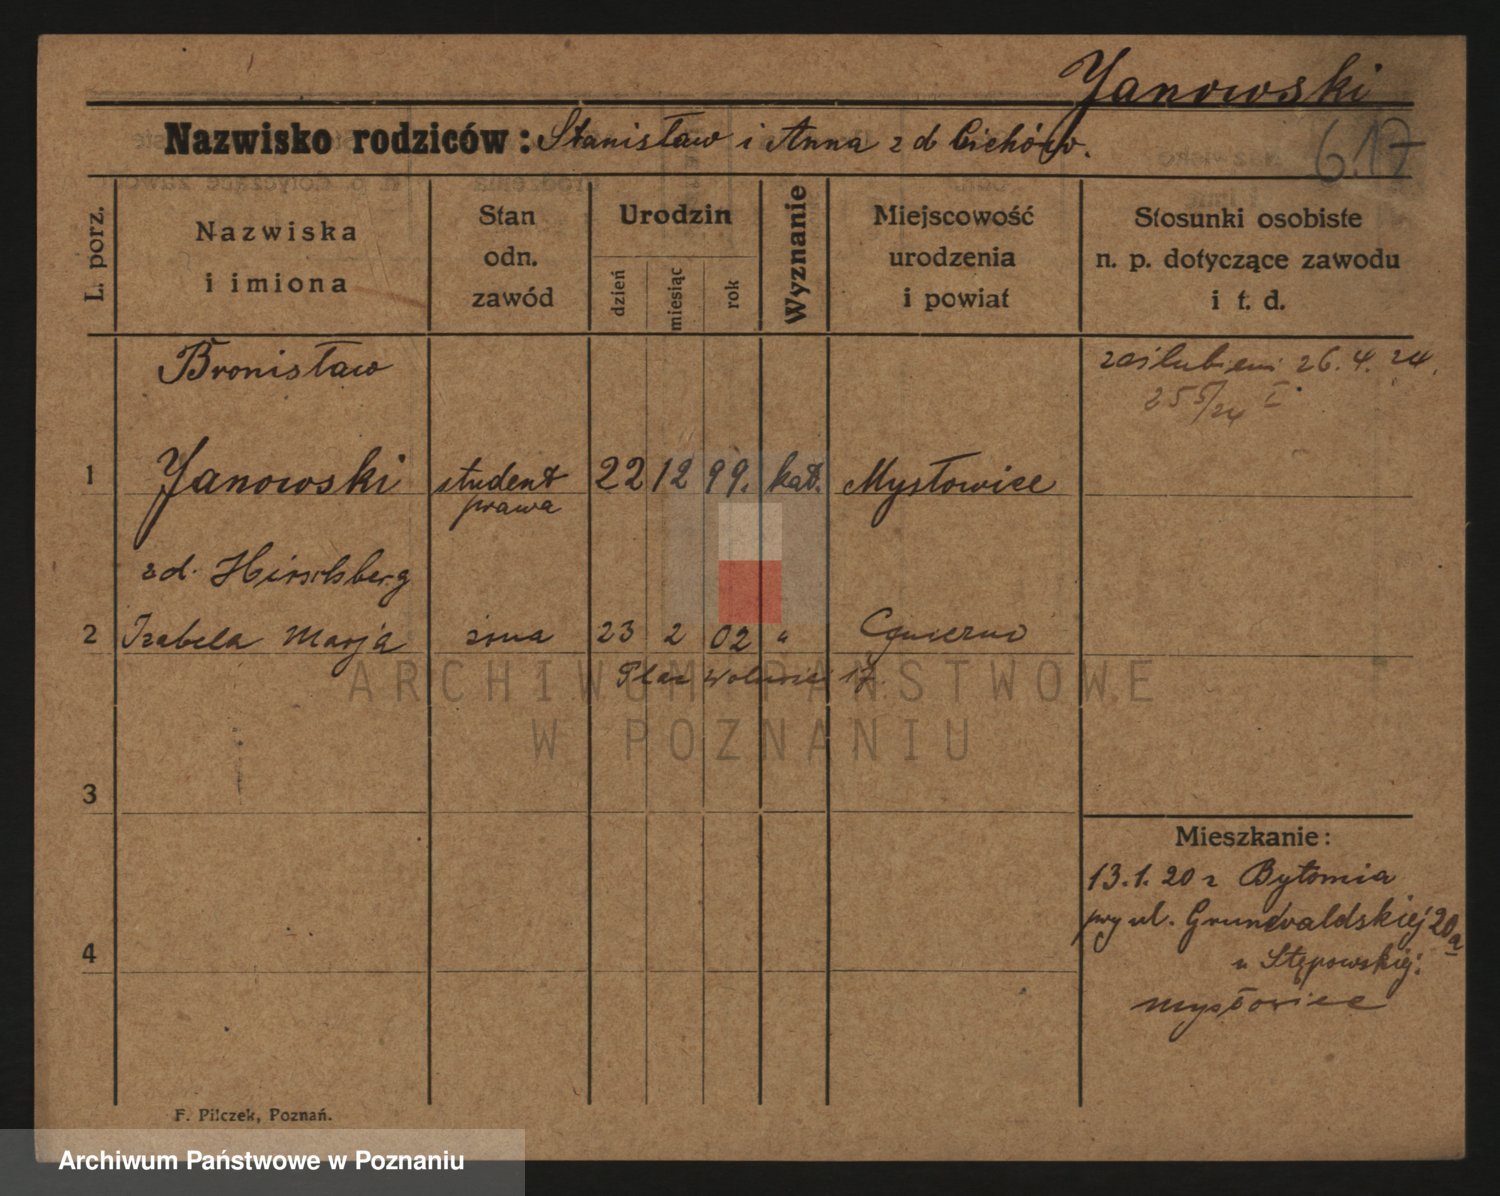 Janowski
Nazwisko rodziców: Stanisław i Anna z d Cichów.
617
L. porz.
Nazwiska
i imiona
Stan
odn.
zawód
Urodzin
dzień
miesiąc
rok
Wyznanie
Miejscowość
urodzenia
i powiat
Stosunki osobiste
n. p. dotyczące zawodu
i t. d.
Bronisław
zaślubieni 26.4.24.
255/24 I
1 Janowski student 22 12 99. kat. Mysłowice
prawa
zd. Hirschberg
2 Izabela Marja żona 23 2 02 " Gniezno
Plac Wolności 17.
ARCHIWUM PAŃSTWOWE
W POZNANIU
3
Mieszkanie:
13.1.20 z Bytomia
przy ul. Grunwaldskiej 20a
4
u Stępowskiej.
Mysłowice
F. Pilczek, Poznań.
Archiwum Państwowe w Poznaniu